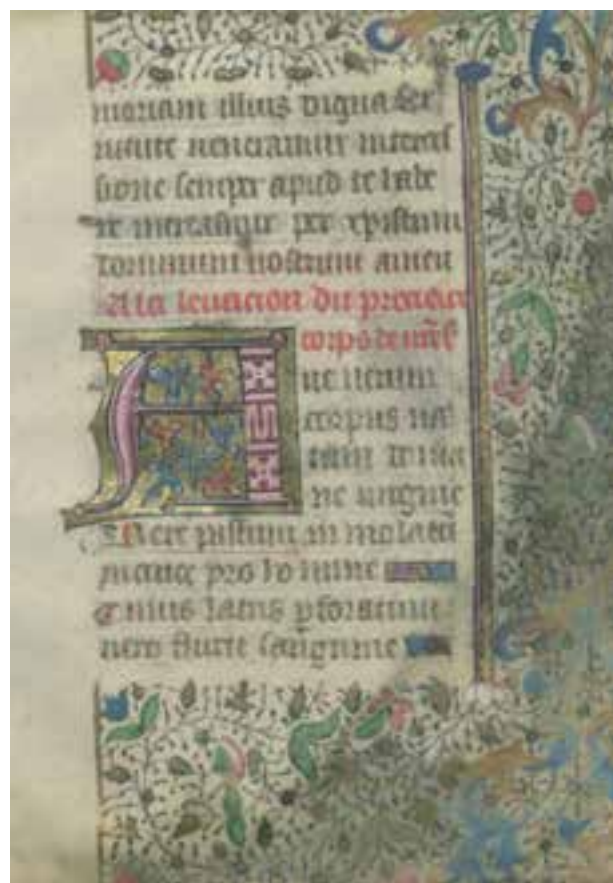 moriam illius digna &
ueneramur interces
sione semper apud te
mereamur per xpistum
dominum nostrum amen
A la leuacion du precieux
corps de nr̄e
ue uerum
corpus na
tum de uir
ne uirgine
Uere passum in molatū
in cruce pro homine
Cuius latus perforatum
uero fluxit sanguine